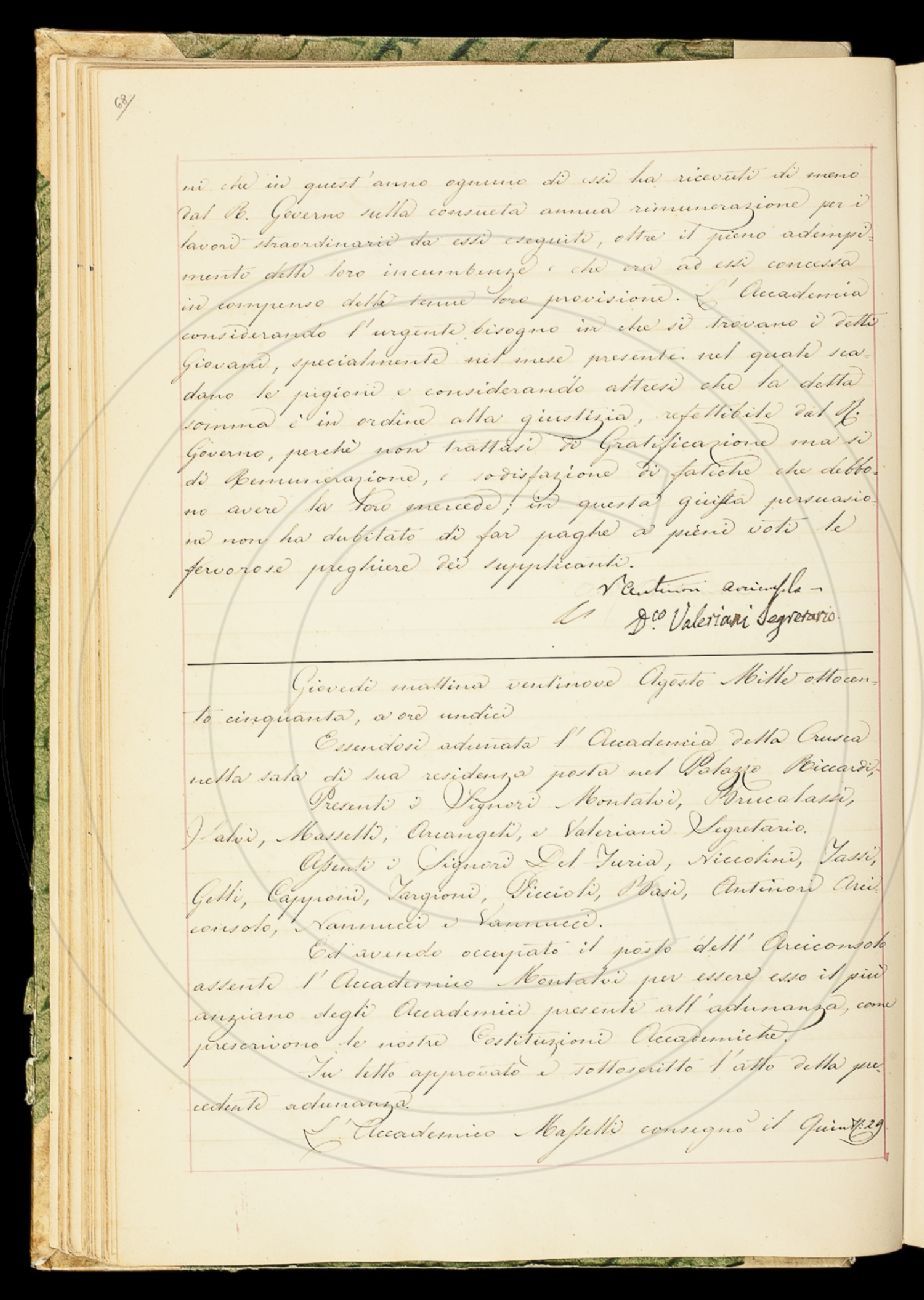 68
ni che in quest'anno ognuno di essi ha ricevuti di meno
dal R. Governo sulla consueta annua rimunerazione per i
lavori straordinarii da essi eseguiti, oltre il pieno adempi=
mento delle loro incumbenze e che era ad essi concessa
in compenso della tenue loro provisione. L'Accademia
considerando l'urgente bisogno in che si trovano i detti
Giovani, specialmente nel mese presente nel quale sca-
dano le pigioni e considerando altresì che la detta
somma è in ordine alla giustizia, refettibile dal R.
Governo, perchè non trattasi di Gratificazione ma sì
di Remunerazione, e sodisfazione di fatiche che debbo-
no avere la loro mercede; in questa giusta persuasio-
ne non ha dubitato di far paghe a pieni voti le
fervorose preghiere dei supplicanti.
V. Antinori
D.co Valeriani Segretario.
Giovedì mattina ventinove Agosto Mille ottocen-
to cinquanta, a ore undici
Essendosi adunata l'Accademia della Crusca
nella sala di sua residenza posta nel Palazzo Riccardi,
Presenti i Signori Montalvi, Brucalassi,
Salvi, Masselli, Arcangeli, e Valeriani Segretario.
Assenti i Signori Del Furia, Niccolini, Tassi,
Gelli, Capponi, Targioni, Piccioli, Basi, Antinori Arci
consolo, Nannucci e Vannucci.
Ed avendo occupato il posto dell'Arciconsolo
assente l'Accademico Montalvi per essere esso il più
anziano degli Accademici presenti all'adunanza, come
prescrivono le nostre Costituzioni Accademiche.
Fu letto approvato e sottoscritto l'atto della pre-
cedente adunanza.
L'Accademico Masselli consegnò il Quin.º 29